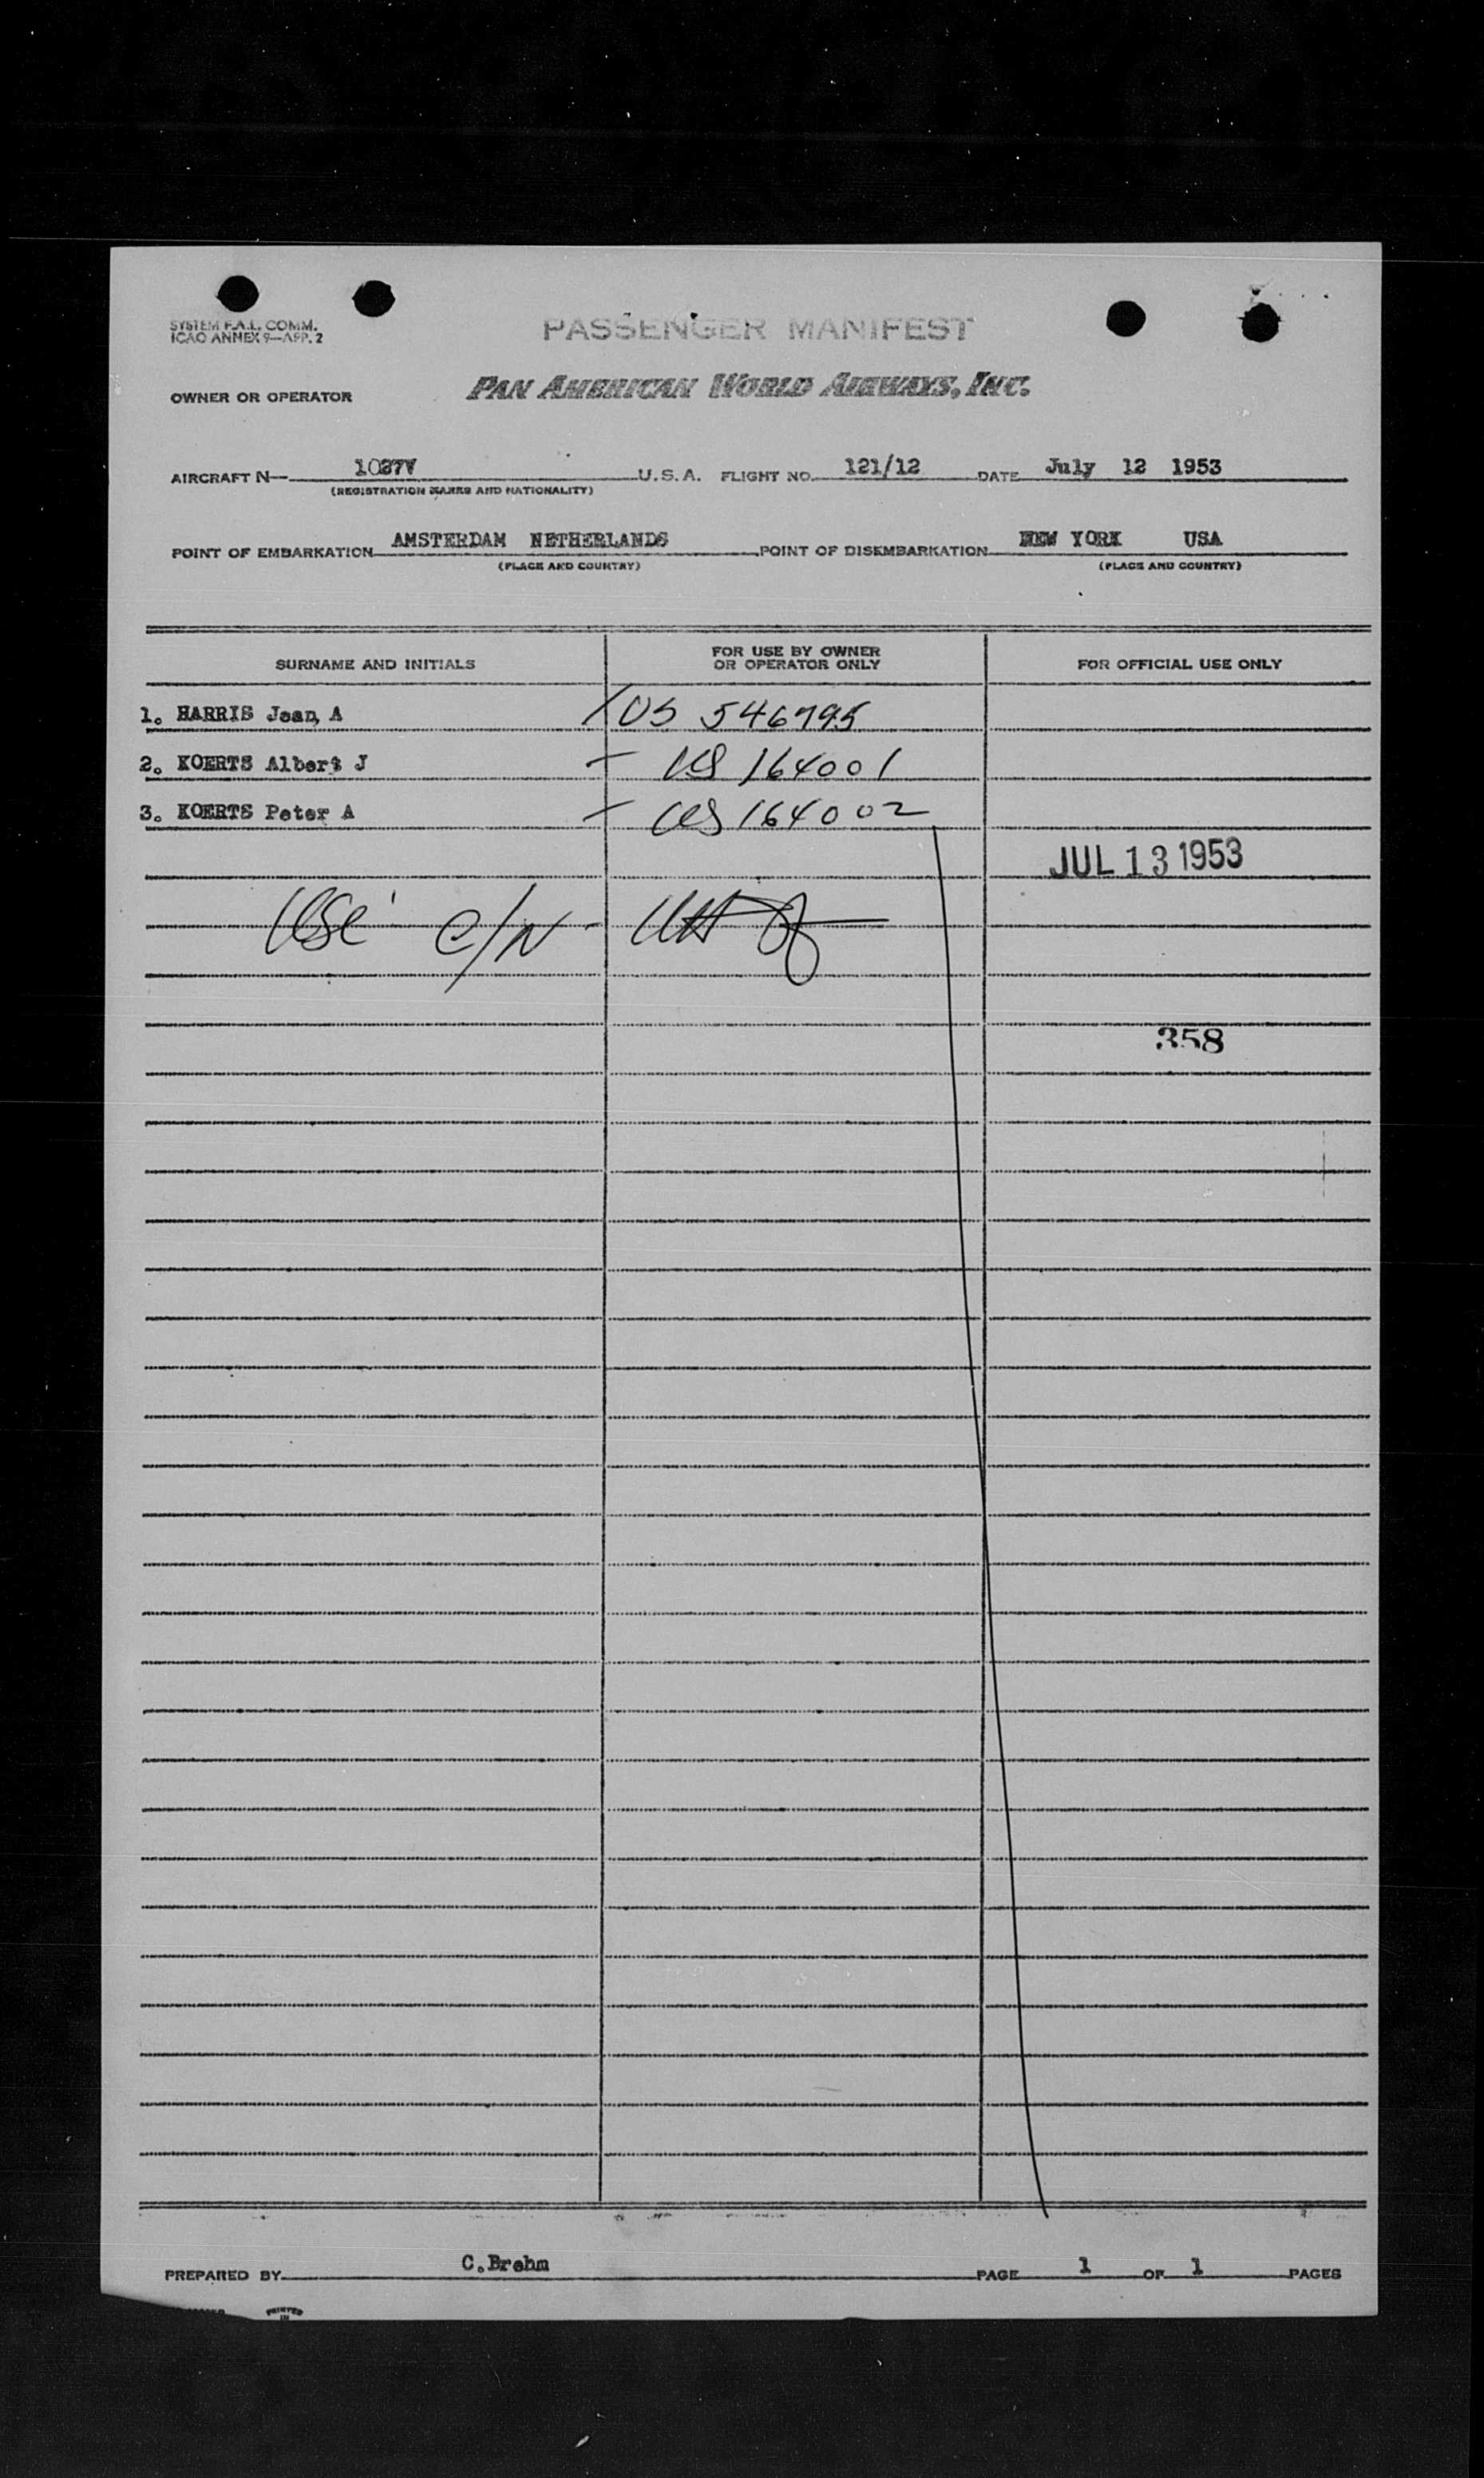 SYSTEM F.A.L. COMM.
ICAO ANNEX 9—APP. 2
PASSENGER MANIFEST
OWNER OR OPERATOR
PAN AMERICAN WORLD AIRWAYS, INC.
AIRCRAFT N— 1027V U.S.A. FLIGHT NO. 121/12 DATE July 12 1953
(REGISTRATION MARKS AND NATIONALITY)
POINT OF EMBARKATION AMSTERDAM NETHERLANDS POINT OF DISEMBARKATION NEW YORK USA
(PLACE AND COUNTRY) (PLACE AND COUNTRY)
SURNAME AND INITIALS FOR USE BY OWNER OR OPERATOR ONLY FOR OFFICIAL USE ONLY
1. HARRIS Jean A US 546795
2. KOERTS Albert J US 164001
3. KOERTS Peter A US 164002
JUL 13 1953
C/N
358
PREPARED BY C.Brehm PAGE 1 OF 1 PAGES
PRINTED
IN